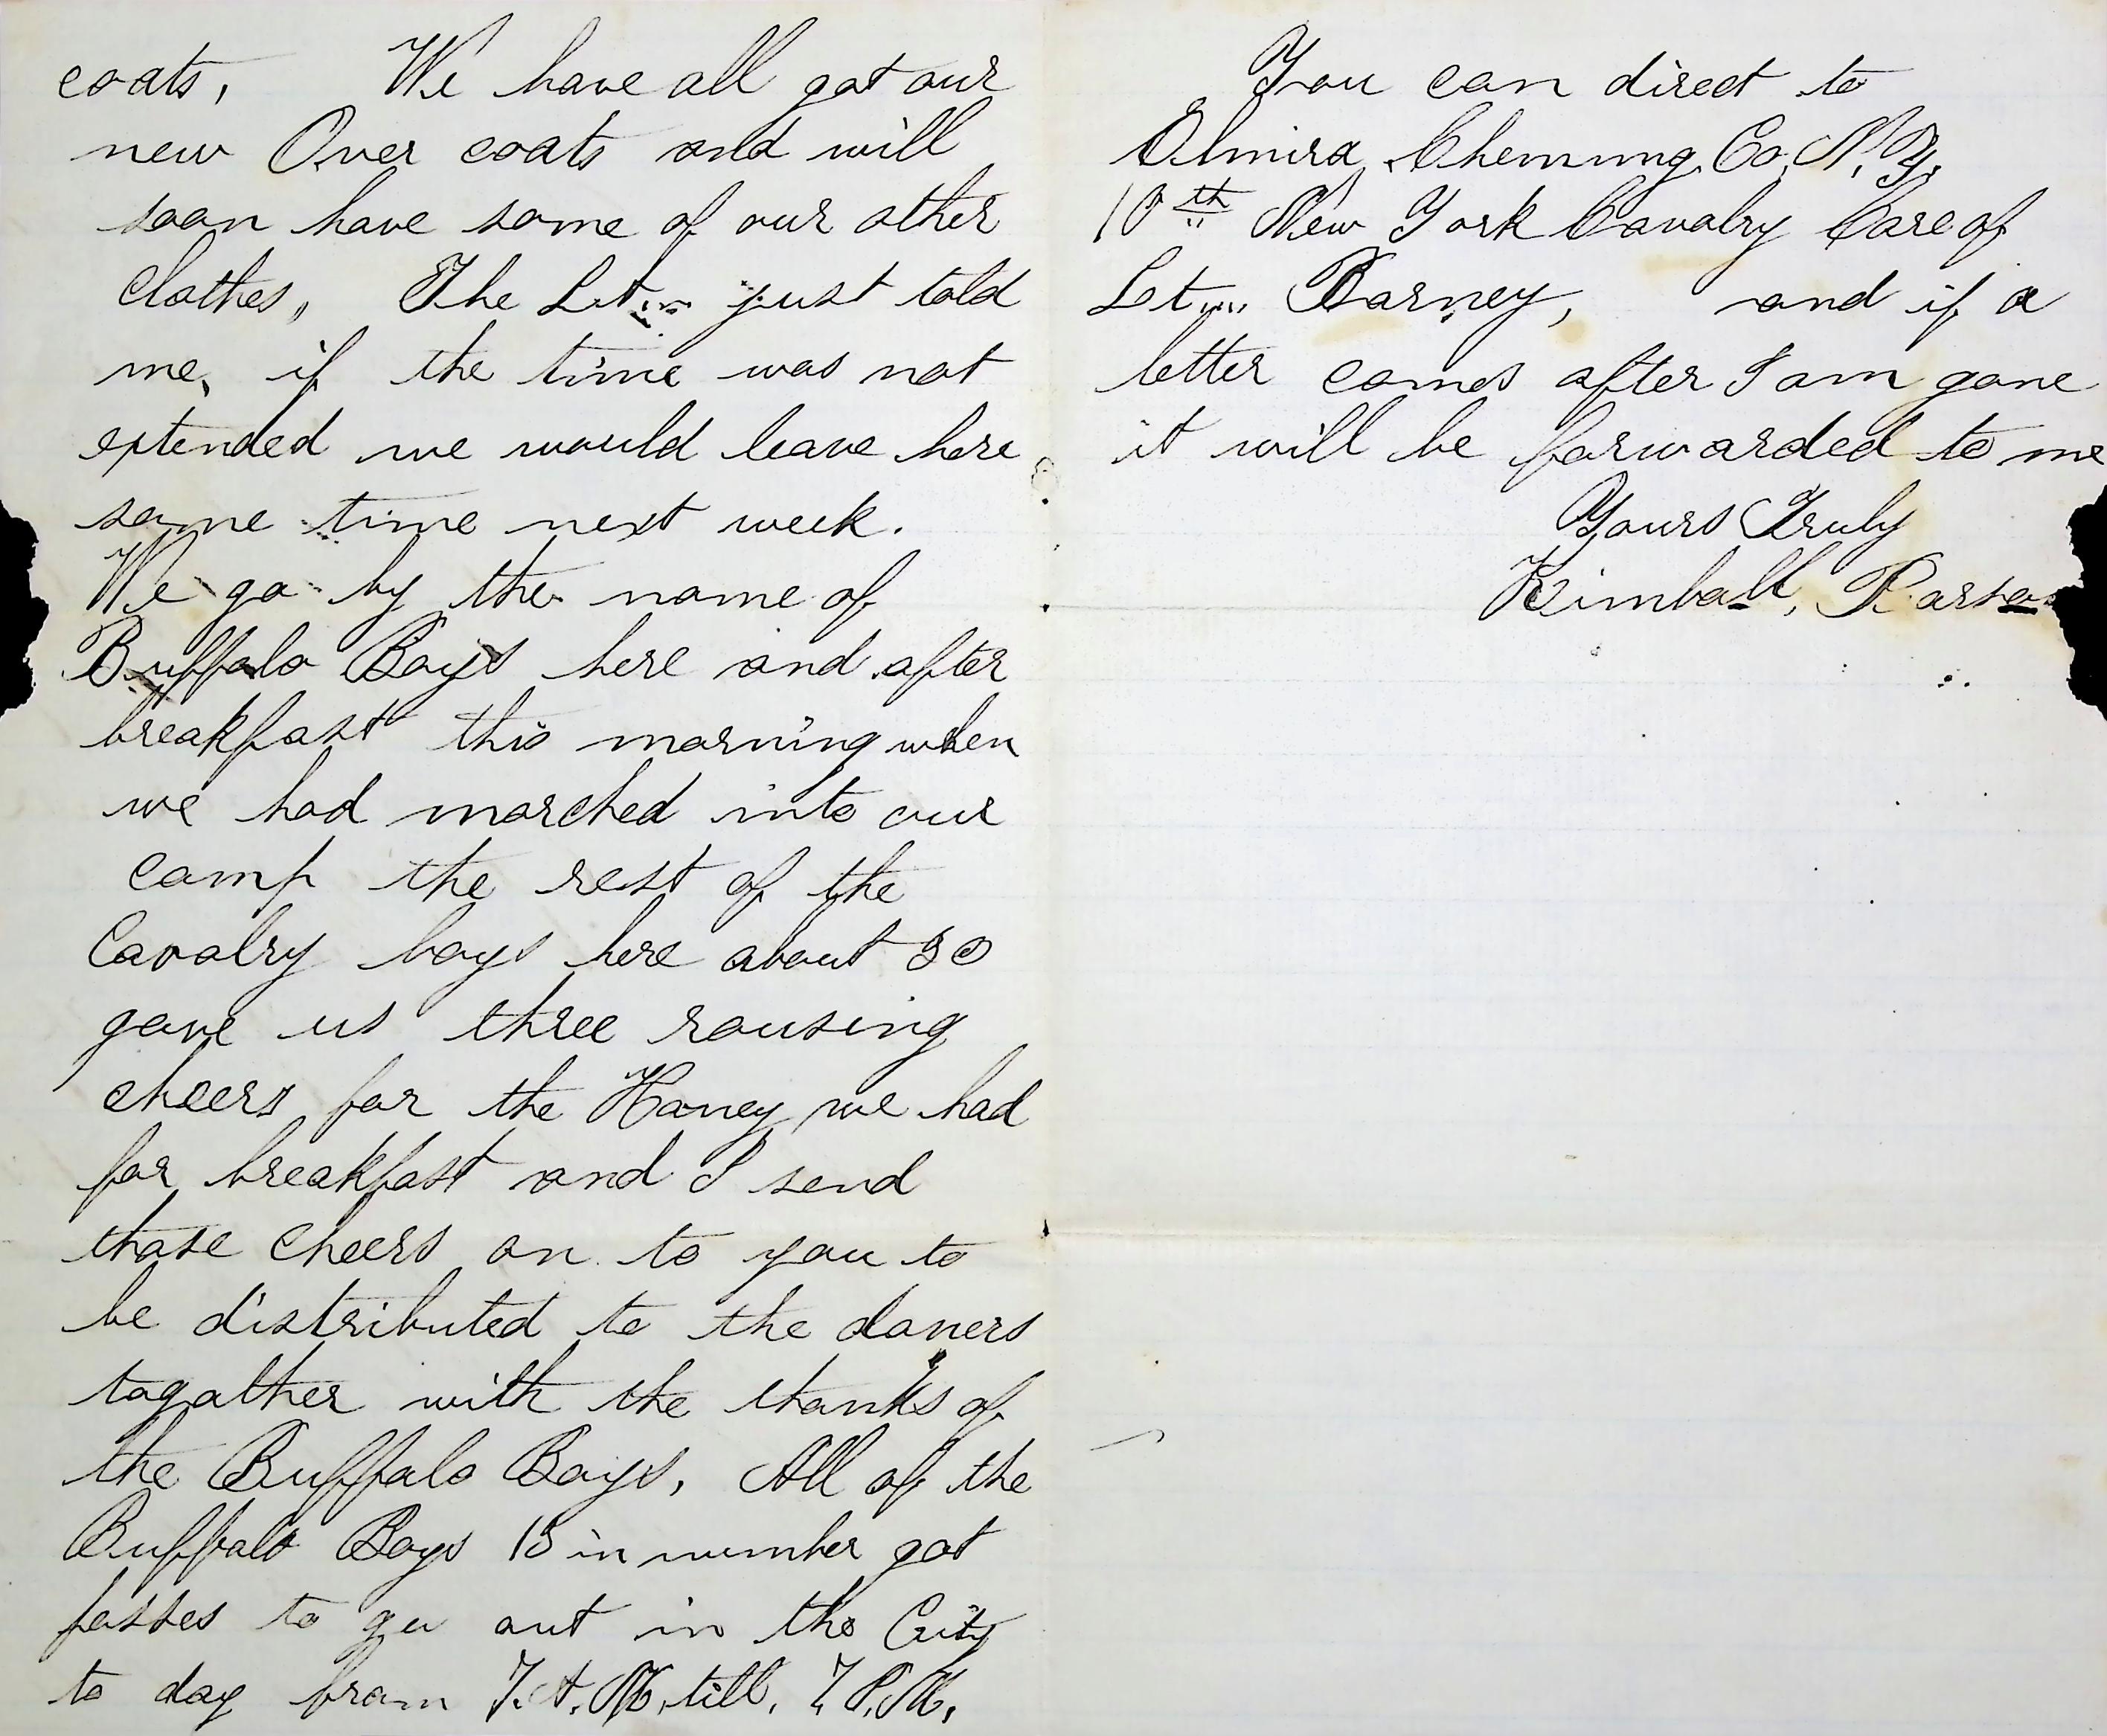 coats, We have all got our
new Over coats and will
soon have some of our other
clothes, The Lut. just told
me, if the time was not
extended we would leave here
some time next week.
We go by the name of
Buffalo Boys here and after
breakfast this morning when
we had marched into our
camp the rest of the
Cavalry boys here about 30
gave us three rousing
cheers for the Honey we had
for breakfast and I send
those cheers on to you to
be distributed to the doners
togather with the thanks of
the Buffalo Boys, All of the
Buffalo Boys 18 in number got
passes to go out in the City
to day from 7. A. M. till, 7 P. M.
You can direct to
Elmira, Chemung, Co, N. Y.
10th New York Cavalry Care of
Lut. Barney, and if a
letter comes after I am gone
it will be forwarded to me
Yours Truly
Kimball,